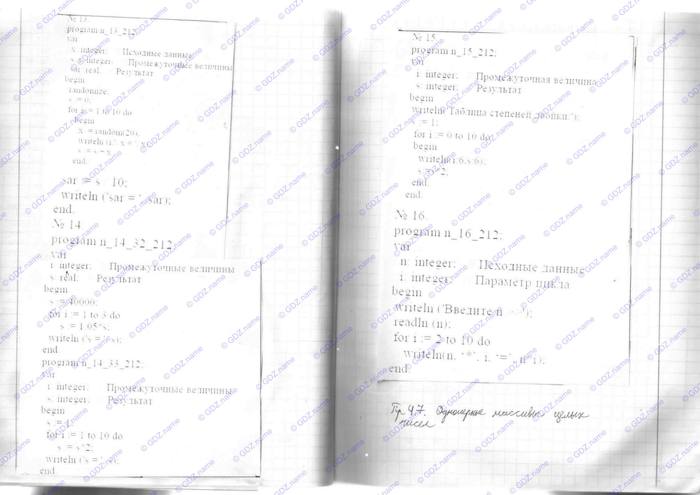 № 13.
program n_13_212;
var
x: integer; Исходные данные
s, i: integer; Промежуточные величины
sar: real; Результат
begin
randomize;
s := 0;
for i := 1 to 10 do
begin
x := random(20);
s := s + x
end;
sar := s / 10;
writeln ('sar = ', sar);
end.
№ 14
program n_14_32_212;
var
i: integer; Промежуточные величины
s: real; Результат
begin
s := 40000;
for i := 1 to 3 do
s := 1.05*s;
writeln ('s = ', s);
end.
program n_14_33_212;
var
i: integer; Промежуточные величины
s: integer; Результат
begin
s := 1;
for i := 1 to 10 do
s := s*2;
writeln ('s = ', s);
end.
№ 15.
program n_15_212;
var
i: integer; Промежуточная величина
s: integer; Результат
begin
writeln('Таблица степеней двойки:');
s := 1;
for i := 0 to 10 do
begin
writeln(i:6,s:6);
s := s*2;
end;
end.
№ 16.
program n_16_212;
var
n: integer; Исходные данные
i: integer; Параметр цикла
begin
writeln ('Введите n
readln (n);
for i := 2 to 10 do
writeln(n, '*', i, '=', n*i);
end.
Пр 4.7. Одномерные массивы целых
чисел
© GDZ.name